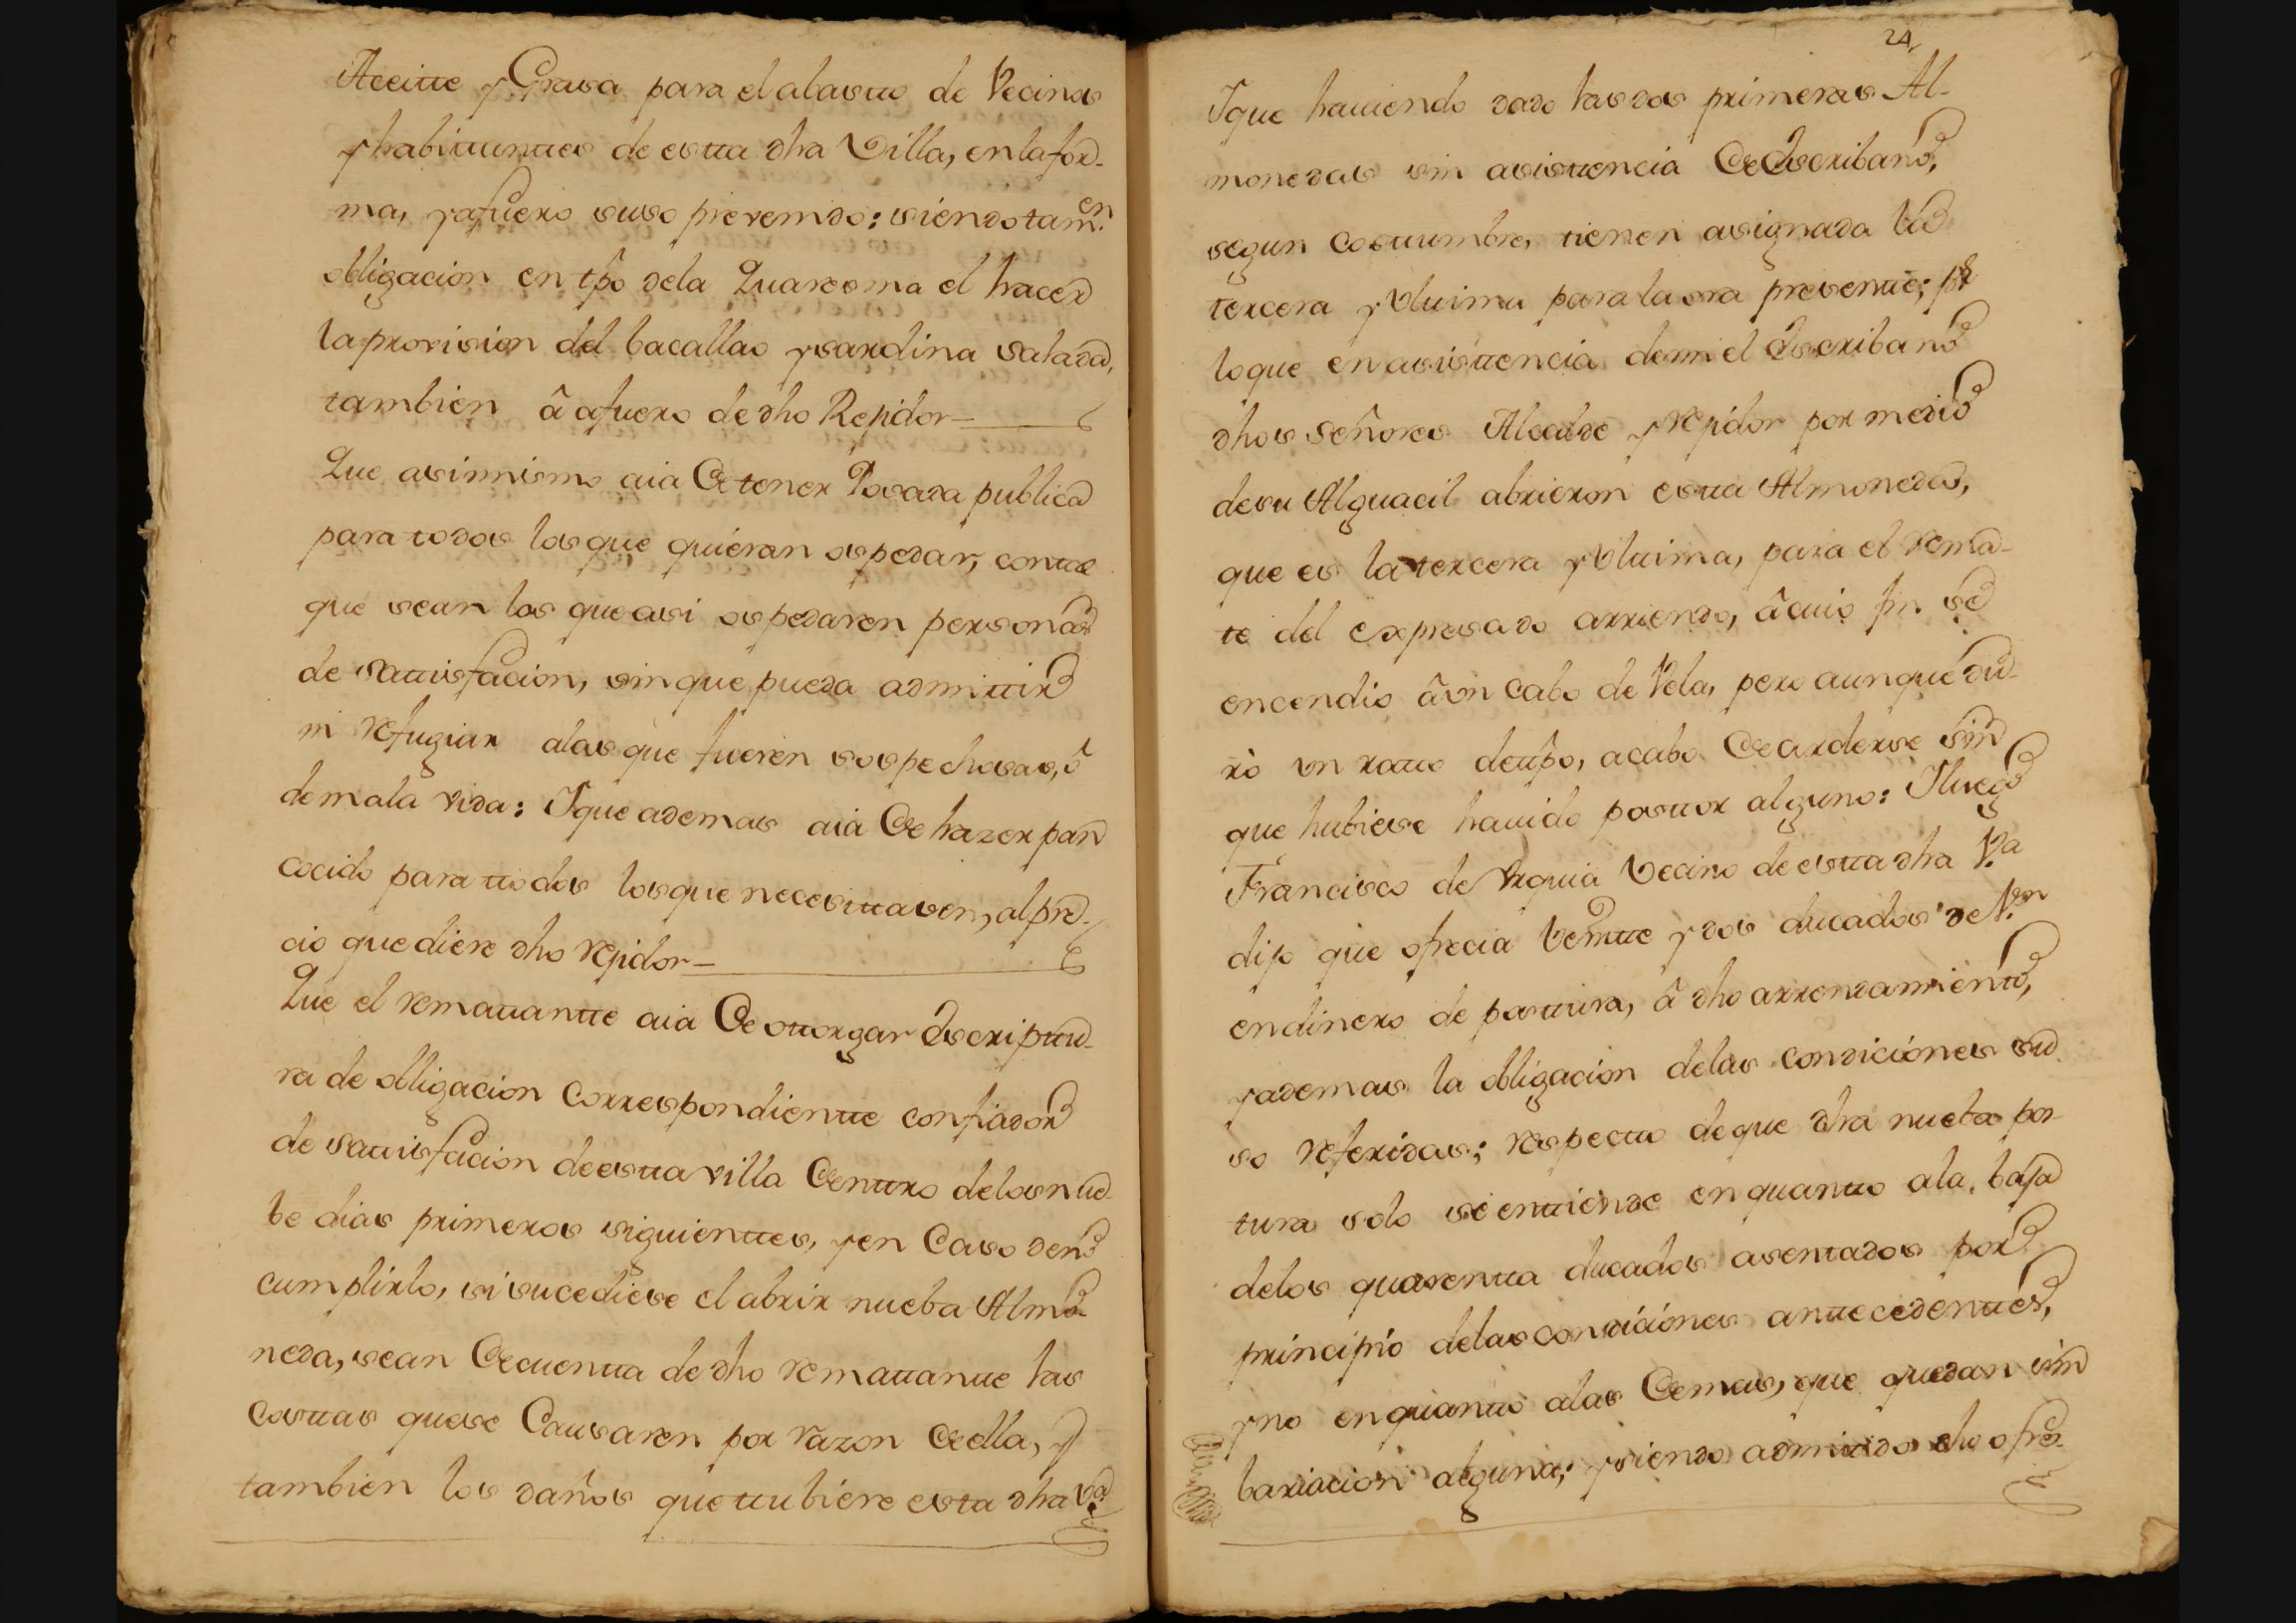 Aceitte y Grasa para el abastto de Vecinos
y habittanttes de estta dha Villa, en la for-
ma, y afuero suso prevenido: siendo tamen.
obligacion en tpo dela Quaresma el hacer
la provision del bacallao y sardina salada,
tambien â afuero de dho Rejidor—
Que asimismo aia de tener Posada publica
para todos los que quieran ospedar, con tal
que sean los que asi ospedaren personas
de sattisfacion, sin que pueda admittir
ni refugiar alas que fueren sospechosas, ô
de mala vida: Y que ademas aia de hazer pan
cocido para ttodos los que necesittasen, al pre-
cio que diere dho rejidor—
Que el remattantte aia de ottorgar Escripttu-
ra de obligacion correspondientte con fiador
de sattisfacion de estta villa dentro delos nue-
be dias primeros siguienttes, y en Caso de no
cumplirlo, si sucediese el abrir nueba Almo-
neda, sean de cuentta de dho remattantte las
costtas que se Causaren por razon de ella, y
tambien los daños que ttubiere esta dha Va.
24
Y que haviendo dado las dos primeras Al-
monedas sin asisttencia de Escribano,
segun costtumbre, tienen asignada la
tercera y Ultima para la ora presentte; por
lo que en asisttencia de mi el Escribano
dhos señores Alcalde y rejidor por medio
de su Alguacil abrieron estta Almoneda,
que es la tercera y Ultima, para el rema-
te del expresado arriendo, â cuio fin se
encendio â un cabo de Vela, pero aunque du-
rò un ratto de ttpo, acabo de arderse sin
que hubiese havido posttor alguno: Y luego
Francisco de Urquia Vecino de estta dha Va.
dijo que ofrecia Veintte y dos ducados de Von
en dinero de posttura, â dho arrendamiento,
y ademas la obligacion delas condiciones su-
so referidas; respectto de que dha nueba pos-
tura solo se enttiende en quantto ala baja
delos quarentta ducados asentados por
principio delas condiciones anttecedenttes,
y no en quantto alas demas, que quedan sin
bariacion alguna; y siendo admitido dho ofre-